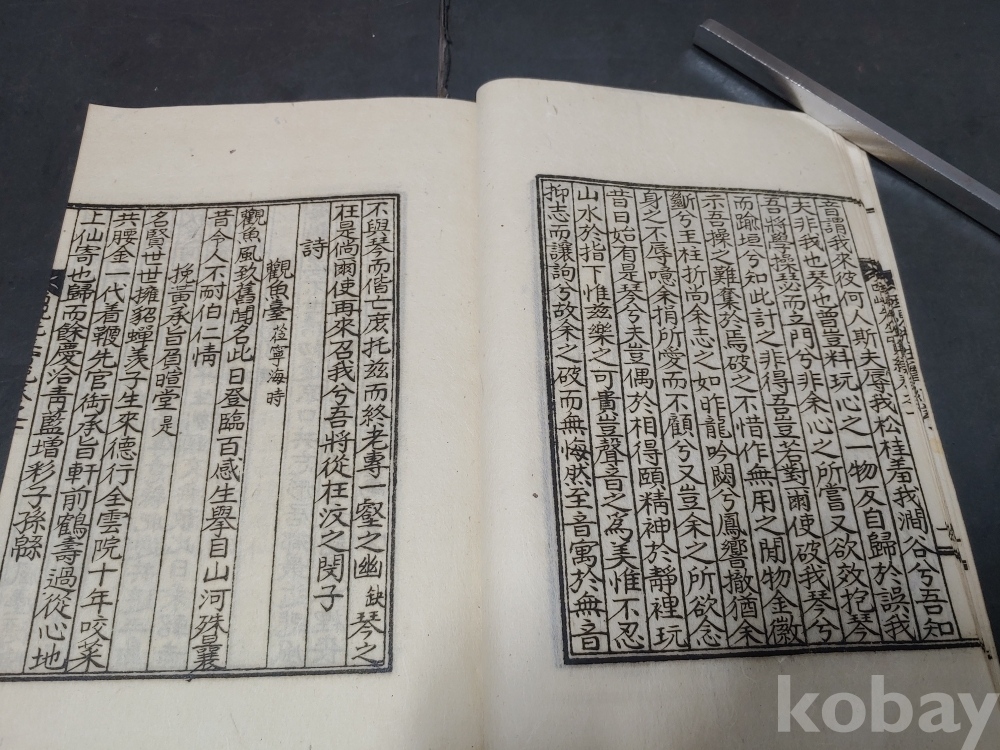 音謂我來彼何人斯夫辱我松桂羞我澗谷兮吾知
夫非我也琴也曾豈料玩心之一物反自歸於誤我
吾將學操瑟而之門兮非余心之所嘗又欲效抱琴
而踰垣兮知此計之非得吾豈若對爾使破我琴兮
示吾操之難奪於焉破之不惜作無用之閒物金徽
斷兮玉柱折尚余志之如昨龍吟闋兮鳳響撤猶余
身之不辱噫余捐所愛而不顧兮又豈余之所欲念
昔日始有是琴兮夫豈偶於相得頤精神於靜裡玩
山水於指下惟玆樂之可貴豈聲音之為美惟不忍
抑志而讓詢兮故余之破而無悔然至音寓於無音
不與琴而偕亡庶托玆而終老專一壑之幽 缺 琴之
枉是倘爾使再來召我兮吾將從枉汶之閔子
詩
觀魚臺 莅寧海時
觀魚風致舊聞名此日登臨百感生擧目山河殊曩
昔令人不耐伯仁情
挽黃承旨負暄堂 是
名賢世世擁貂蟬羨子生來德行全雲院十年咬菜
共腰金一代着鞭先官銜承旨軒前鶴壽過從心地
上仙寄也歸而餘慶洽靑藍增彩子孫緜
kobay